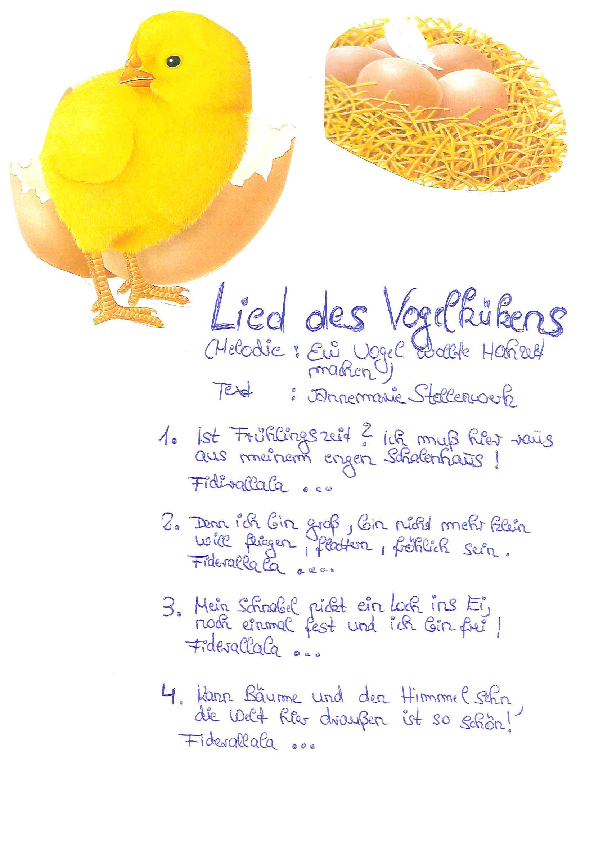 Lied des Vogelkükens
(Melodie : Ein Vogel wollte Hohzeit
machen)
Text : Annemarie Stollenwerk
1. Ist Frühlingszeit? ich muß hier raus
aus meinem engen Schalenhaus!
Fidirallala ...
2. Denn ich bin groß, bin nicht mehr klein
will fliegen, flattern, fröhlich sein.
Fiderallala ....
3. Mein Schnabel pickt ein Loch ins Ei,
noch einmal fest und ich bin frei!
Fiderallala ...
4. Kann Bäume und den Himmel sehn,
die Welt hier draußen ist so schön!
Fiderallala ...